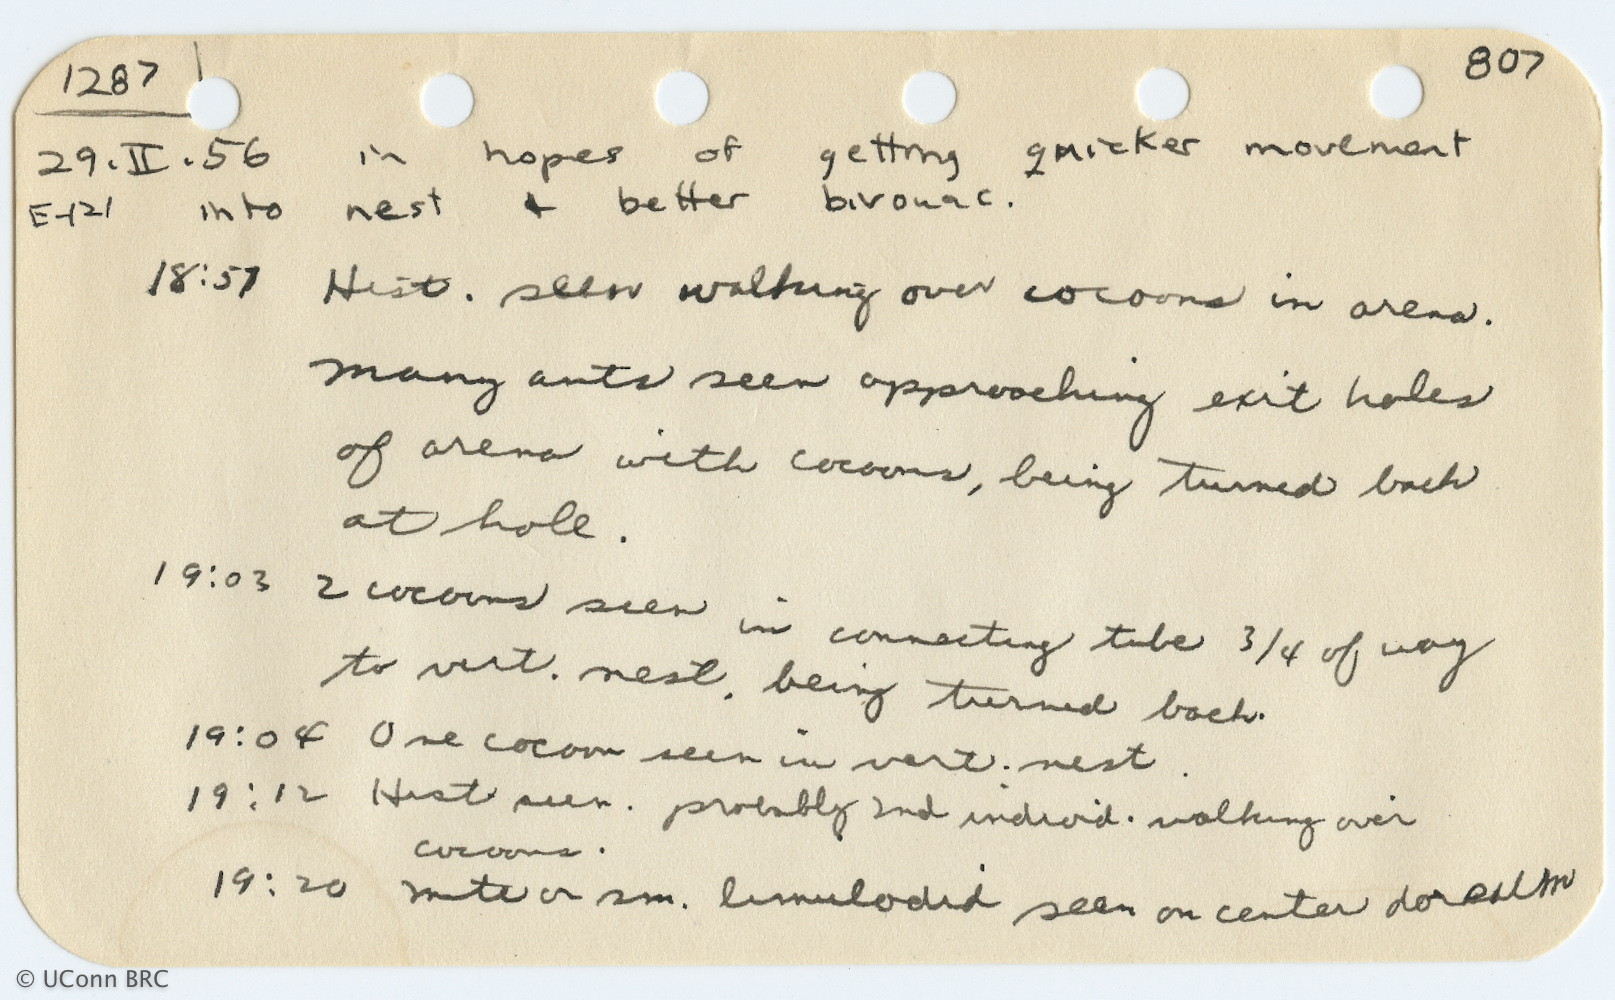 1287
807
29.II.56 in hopes of getting quicker movement
E-121 into nest & better bivouac.
18:57 Hist. seen walking over cocoons in arena.
Many ants seen approaching exit holes
of arena with cocoons, being turned back
at hole.
19:03 2 cocoons seen in connecting tube 3/4 of way
to vert. nest, being turned back.
19:04 One cocoon seen in vert. nest.
19:12 Hist seen. probably 2nd individ. walking over
cocoons.
19:20 mite or sm. limulodid seen on center
© UConn BRC